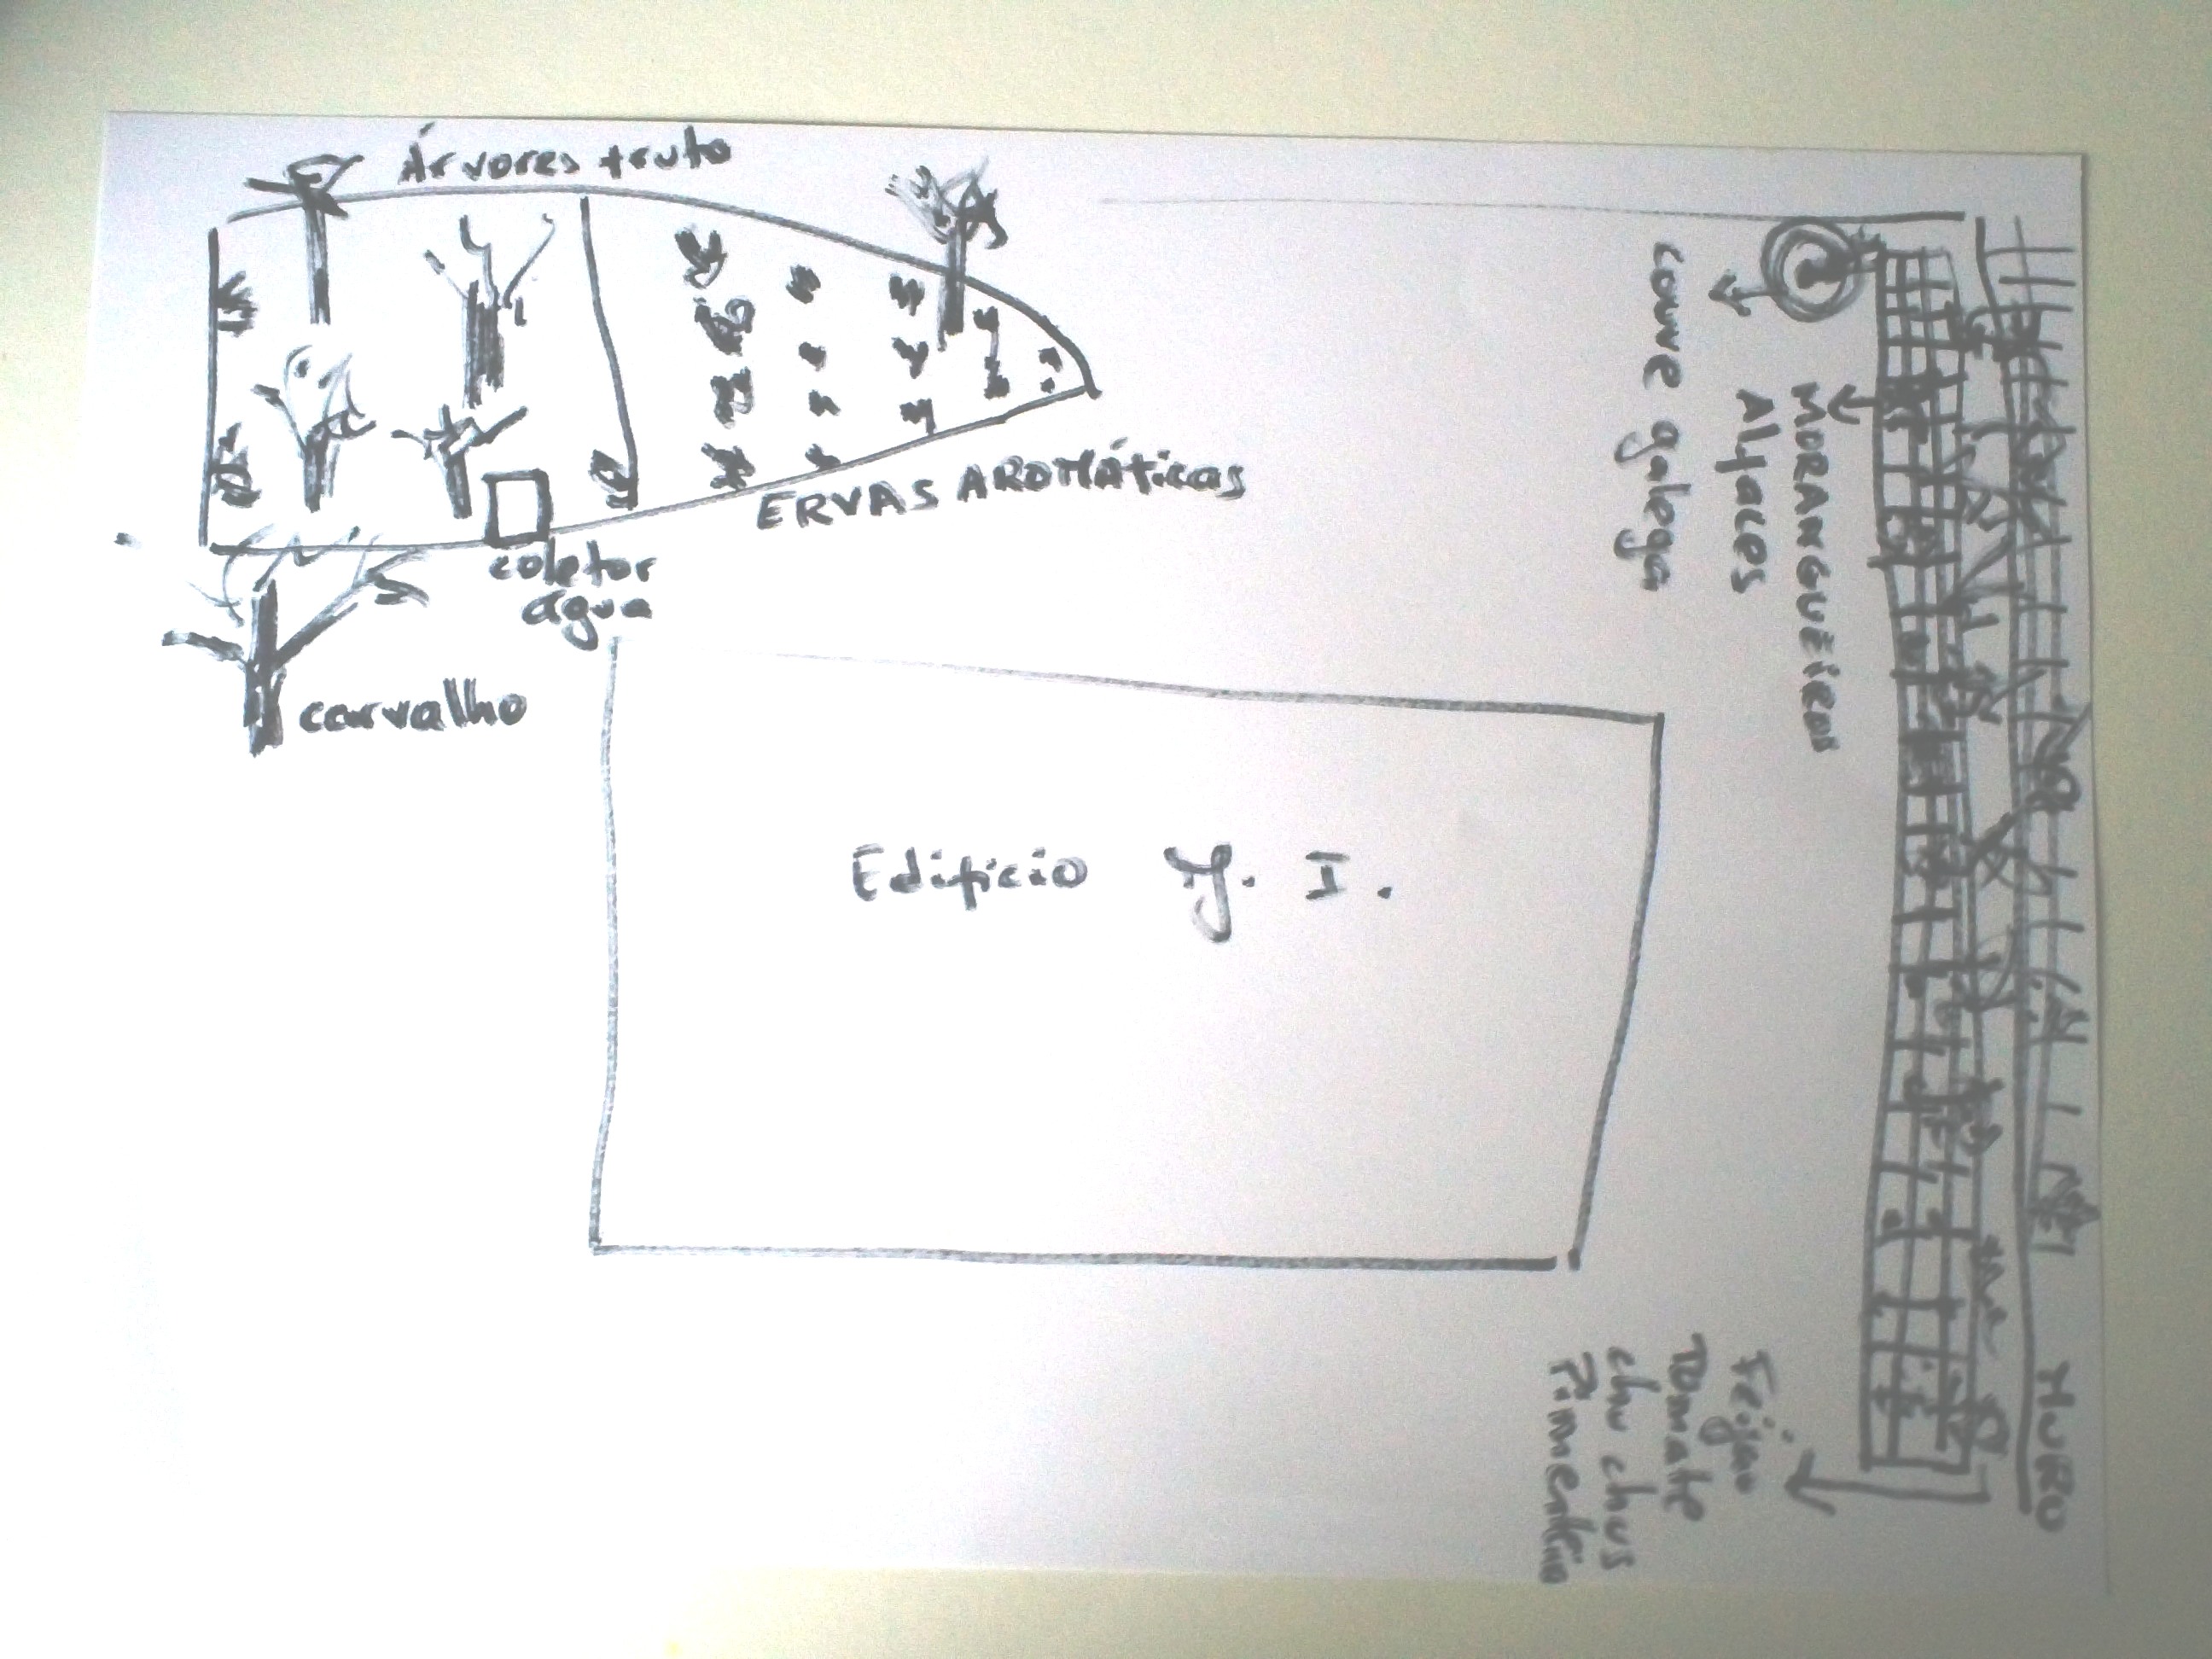 Árvores fruto
ERVAS AROMÁTICAS
coletor
água
carvalho
Edifício J. I.
MORANGUEIROS
Alfaces
couve galega
Feijão
Tomate
chu chus
Pimentão
MURO